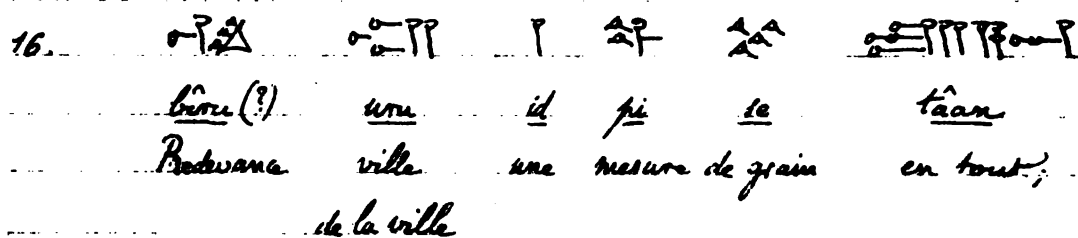 16.
bîru (?) uru id pi še tâan
Redevance ville une mesure de grain en tout;
de la ville